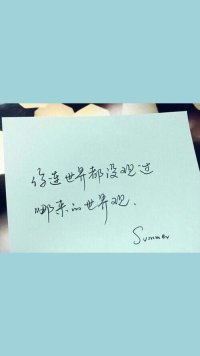 你连世界都没观过
哪来的世界观.
Summer